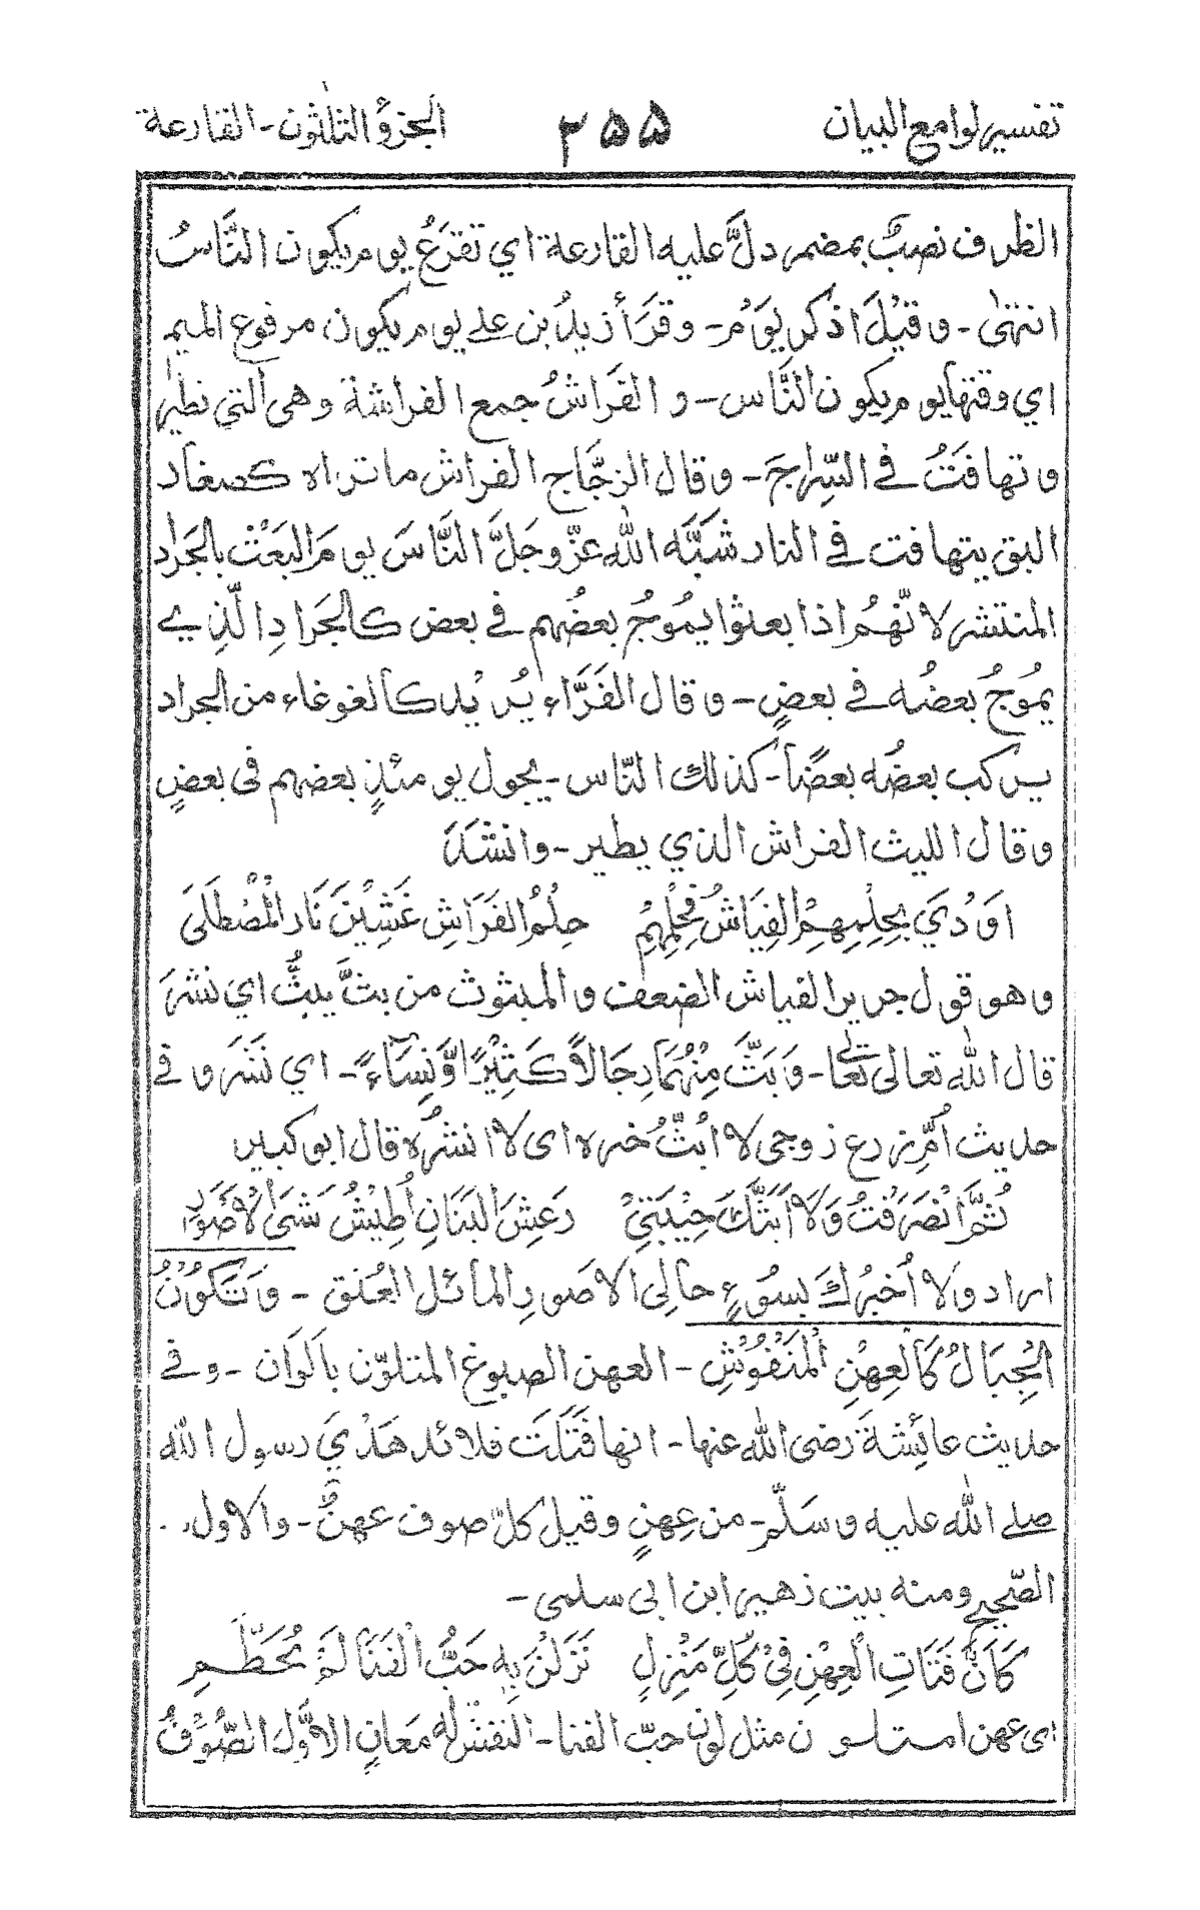 تفسير لوامع البيان ٣٥٥ الجزؤ الثلثون - القارعة
الظرف نصبٌ بمضمر دلَّ عليه القارعة اي تقرَعُ يوم يكون النَّاسُ
انتهٰى - وقيْلَ اذكر يَوَمُ - وقَرَأ زيدُ بن علے يوم يكون مرفوع الميم
اي وقتها يوم يكون النَّاس - و الفَراشُ جمع الفراشة وهى التي تطير
وتهافَتُ في السِّراجَ - وقال الزجَّاج الفراش ما تراه كصغار
البق يتهافت في النار شَبَّهَ اللّٰه عزّ وجَلَّ النَّاسَ يومَ البَعْث بالجَراد
المنتشر لانّهُم اذا بعثوا يمُوجُ بعضُهم في بعض كالجَرادِ الّذِي
يمُوجُ بعضُه في بعضٍ - وقال الفَرَّاء يُريْد كالغوغاء من الجراد
يركب بعضُه بعضًا - كذلك النّاس - يجول يومئذٍ بعضهم فى بعضٍ
وقال الليث الفراش الذي يطير - وانشَدَ
اَوْدَي بِحِلِمِهِمْ الفِيَاشُ فَحِلْمُهِم حِلْمُ الفَرَاشِ غَشِيْنَ نَار الْمُصْطَلَى
وهو قول جرير الفياش الضعف والمبثوث من بثَّ يبثُّ اي نشرَ
قال اللّٰه تعالى تعالٰى - وَبَثَّ مِنْهُمَا رِجَالاً كَثِيْرًا وَّنِسَآءً - اي نَشَرَ وفي
حديث اُمّ زرع زوجى لا ابُثُّ خبره اى لا انشُره قال ابو كبير
ثُمَّ انْصَرَفْتُ وَلاَ اَبَثُّكَ حِيْبَتِيْ رَعِشَ البَنَانِ اُطِيْشُ مَشْىَ الْاَصْوَرِ
اراد ولا اُخبرُك بسُوْءٍ حالِى الاصَورِ المائل العُنق - وَتَكُوْنُ
الْجِبَالُ كَالْعِهْنِ الْمَنْفُوْشِ - العهن الصبوغ المتلوّن باَلوَان - وفي
حديث عائشةَ رضى اللّٰه عنها - انها فَتَلَت قلائد هَدْيَ رسول اللّٰه
صلے اللّٰه عليه وسَلّم - من عِهنٍ وقيل كلّ صوف عهنٌ - والاول
الصّحيح ومنه بيت زهير ابن ابى سلمى -
كَاَنَّ فَتَاتِ الْعِهْنِ فِيْ كُلِّ مَنْزِلٍ نَزَلْنَ بِهٖ حَبُّ الْفَنَا لَمْ يُحَطَّمِ
اى عهن امتلون مثل لون حبّ الفنا - النفش له معانٍ الاوَّل الصُّوْفُ